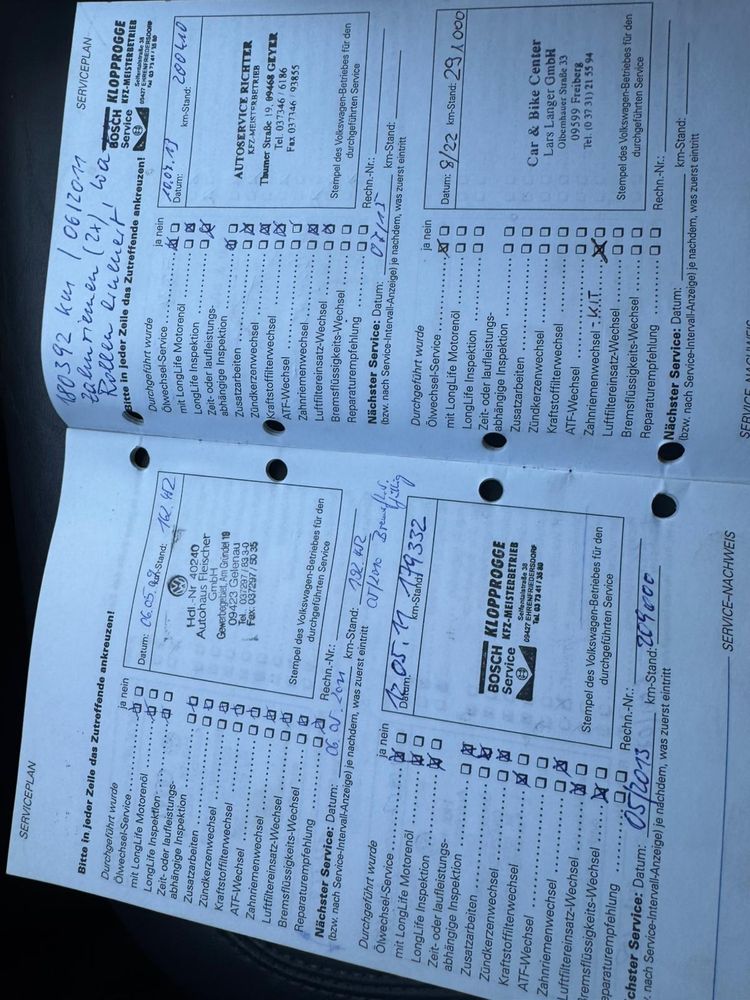 SERVICEPLAN
Bitte in jeder Zeile das Zutreffende ankreuzen!
Durchgeführt wurde
ja nein
Ölwechsel-Service
mit LongLife Motorenöl
LongLife Inspektion
Zeit- oder laufleistungs-
abhängige Inspektion
Zusatzarbeiten
Zündkerzenwechsel
Kraftstoffilterwechsel
ATF-Wechsel
Zahnriemenwechsel
Luftfiltereinsatz-Wechsel
Bremsflüssigkeits-Wechsel
Reparaturempfehlung
Datum: 06.05.
km-Stand:
Hdl.-Nr 40240
Autohaus Fleischer
GmbH
Gewerbegebiet, Am Gründel 19
09423 Gelenau
Stempel des Volkswagen-Betriebes für den
durchgeführten Service
Rechn.-Nr.:
Nächster Service: Datum: 06.05.2011 km-Stand:
(bzw. nach Service-Intervall-Anzeige) je nachdem, was zuerst eintritt
Durchgeführt wurde
ja nein
Ölwechsel-Service
mit LongLife Motorenöl
LongLife Inspektion
Zeit- oder laufleistungs-
abhängige Inspektion
Zusatzarbeiten
Zündkerzenwechsel
Kraftstoffilterwechsel
ATF-Wechsel
Zahnriemenwechsel
Luftfiltereinsatz-Wechsel
Bremsflüssigkeits-Wechsel
Reparaturempfehlung
Datum: 12.05.11
km-Stand: 179332
BOSCH Service
KLOPPROGGE
KFZ-MEISTERBETRIEB
Seifentalstraße 38
09427 EHRENFRIEDERSDORF
Tel 03 73 41/35 80
Stempel des Volkswagen-Betriebes für den
durchgeführten Service
Rechn.-Nr.:
chster Service: Datum: 05/2013 km-Stand: 209000
nach Service-Intervall-Anzeige) je nachdem, was zuerst eintritt
SERVICE-NACHWEIS
SERVICEPLAN
180392 km / 06/2011
Zahnriemen (2x)
Rollen erneuert!
BOSCH Service
KLOPPROGGE
KFZ-MEISTERBETRIEB
Seifentalstraße 38
09427 EHRENFRIEDERSDORF
Tel 03 73 41/35 80
Bitte in jeder Zeile das Zutreffende ankreuzen!
Durchgeführt wurde
ja nein
Ölwechsel-Service
mit LongLife Motorenöl
LongLife Inspektion
Zeit- oder laufleistungs-
abhängige Inspektion
Zusatzarbeiten
Zündkerzenwechsel
Kraftstoffilterwechsel
ATF-Wechsel
Zahnriemenwechsel
Luftfiltereinsatz-Wechsel
Bremsflüssigkeits-Wechsel
Reparaturempfehlung
Datum: 10.04.13
km-Stand: 200410
AUTOSERVICE RICHTER
KFZ-MEISTERBETRIEB
Thumer Straße 19, 09468 GEYER
Tel. 037346 / 6186
Fax 037346 / 93855
Stempel des Volkswagen-Betriebes für den
durchgeführten Service
Rechn.-Nr.:
Nächster Service: Datum: km-Stand:
(bzw. nach Service-Intervall-Anzeige) je nachdem, was zuerst eintritt
Durchgeführt wurde
ja nein
Ölwechsel-Service
mit LongLife Motorenöl
LongLife Inspektion
Zeit- oder laufleistungs-
abhängige Inspektion
Zusatzarbeiten
Zündkerzenwechsel
Kraftstoffilterwechsel
ATF-Wechsel
Zahnriemenwechsel - KIT
Luftfiltereinsatz-Wechsel
Bremsflüssigkeits-Wechsel
Reparaturempfehlung
Datum: 8/22
km-Stand: 291000
Car & Bike Center
Lars Langer GmbH
Olbernhauer Straße 33
09599 Freiberg
Tel. (0 37 31) 21 55 94
Stempel des Volkswagen-Betriebes für den
durchgeführten Service
Rechn.-Nr.:
Nächster Service: Datum: km-Stand:
(bzw. nach Service-Intervall-Anzeige) je nachdem, was zuerst eintritt